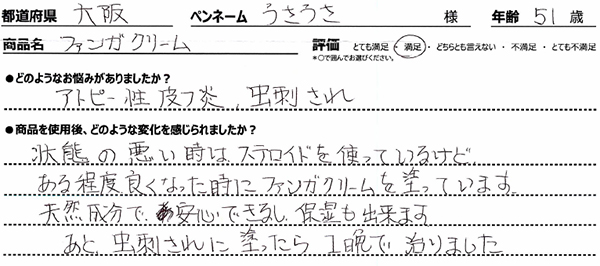 都道府県 大阪 ペンネーム うさうさ 様 年齢 51 歳
商品名 ファンガクリーム 評価 とても満足・満足・どちらとも言えない・不満足・とても不満足
*〇で囲んでお選びください。
●どのようなお悩みがありましたか?
アトピー性皮フ炎、虫刺され
●商品を使用後、どのような変化を感じられましたか?
状態の悪い時はステロイドを使っているけど
ある程度良くなった時にファンガクリームを塗っています
天然成分で安心できるし保湿も出来ます
あと虫刺されに塗ったら1晩で治りました